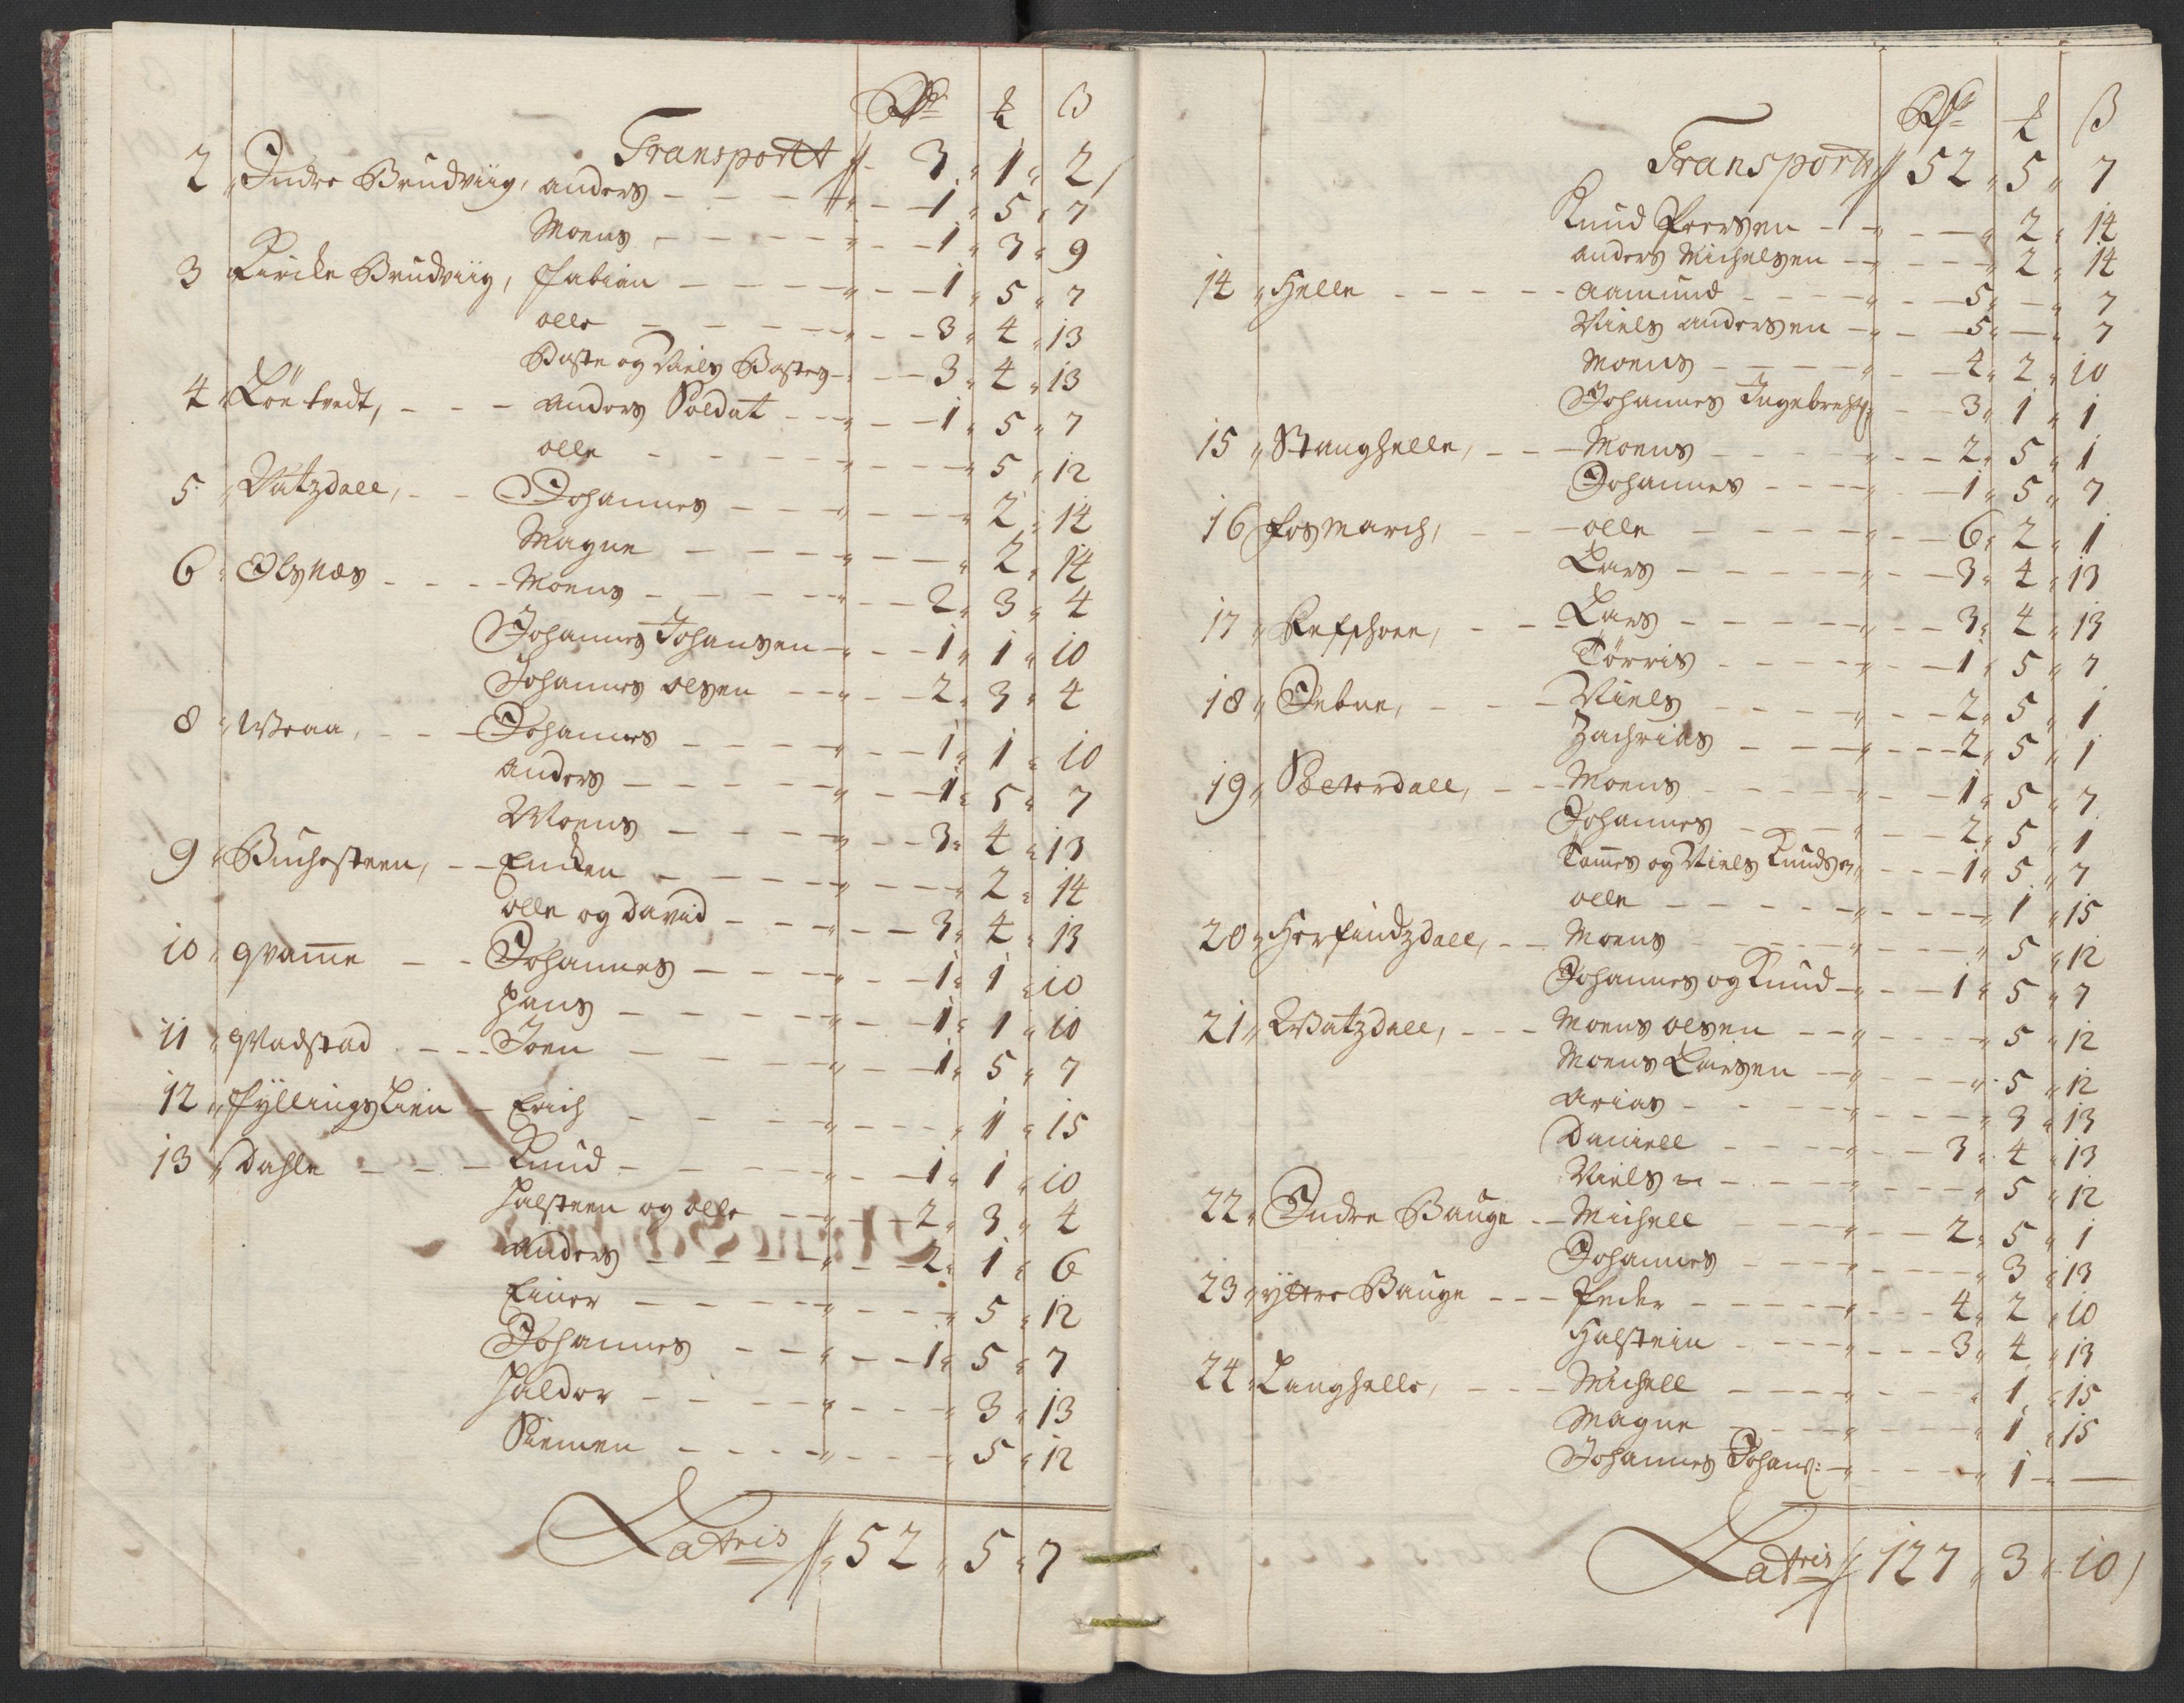 Rdr ꝉ ß
Transportt 3 " 1 " 2
2 " Indre Brudviig, anders - - - 1 " 5 " 7
Moens - - - 1 " 3 " 9
3 Kircke Brudviig, Fabian - - - 1 " 5 " 7
olle - - - 3 " 4 " 13
Baste og Niels Bastes - - - 3 " 4 " 13
4 Lönetvedt, - - - anders Soldat - - - 1 " 5 " 7
olle - - - " 5 " 12
5 " Vatzdall, - - Johannes - - - " 2 " 14
Magne - - - " 2 " 14
6 " Olsnæs - - - Moens - - - 2 " 3 " 4
Johannes Johansen - - 1 " 1 " 10
Johannes olsen - - - 2 " 3 " 4
8 " Wraa, - - - Johannes - - - 1 " 1 " 10
anders - - - 1 " 5 " 7
Moens - - - 3 " 4 " 13
9 " Buchesteen, - - Encken - - - " 2 " 14
olle og david - - - 3 " 4 " 13
10 " qvam̅e - - Johannes - - - 1 " 1 " 10
hans - - - 1 " 1 " 10
11 " qvadstad - - - Joen - - - 1 " 5 " 7
12 " Fyllingslien - Erich - - - " 1 " 15
13 " Dahle - - - Knud - - - 1 " 1 " 10
halsteen og olle - - - 2 " 3 " 4
anders - - - 2 " 1 " 6
Einer - - - " 5 " 12
Johannes - - - 1 " 5 " 7
haldor - - - " 3 " 13
Siemen - - - " 5 " 12
Latris 52 " 5 " 7
Rdr ꝉ ß
Transport 52 " 5 " 7
Knud Peersen - - - " 2 " 14
anders Michelsen - - - " 2 " 14
14 " Helle - - - - aamund - - - 5 " - " 7
Niels andersen - - 5 " - " 7
Moens - - - 4 " 2 " 10
Johannes Ingebrehts: - - 3 " 1 " 1
15 " Stanghelle, - - - Moens - - - 2 " 5 " 1
Johannes - - - 1 " 5 " 7
16 Fosmarch, - - - olle - - - 6 " 2 " 1
Lars - - - 3 " 4 " 13
17 " - - - Lars - - - 3 " 4 " 13
Törris - - - 1 " 5 " 7
18 " - - - Niels - - - 2 " 5 " 1
Zachrias - - - 2 " 5 " 1
19 " Sæterdall, - - - Moens - - - 1 " 5 " 7
Johannes - - - 2 " 5 " 1
Tom̅es og Niels Knuds: - - - 1 " 5 " 7
olle - - - " 1 " 15
20 " Herfindzdall, - - Moens - - - " 5 " 12
Johannes og Knud - - - 1 " 5 " 7
21 " Watzdall, - - - Moens olsen - - - " 5 " 12
Moens Larsen - - - " 5 " 12
arias - - - " 3 " 13
Daniell - - - 3 " 4 " 13
Niels - - - " 5 " 12
22 " Indre Bauge - - Michell - - - 2 " 5 " 1
Johannes - - - " 3 " 13
23 " yttre Bauge - - - Peder - - - 4 " 2 " 10
Halstein - - - 3 " 4 " 13
24 " Langhelle, - - - Michell - - - " 1 " 15
Magne - - - " 1 " 15
Johannes Johans: - - - " 1 " -
Latris 127 " 3 " 10